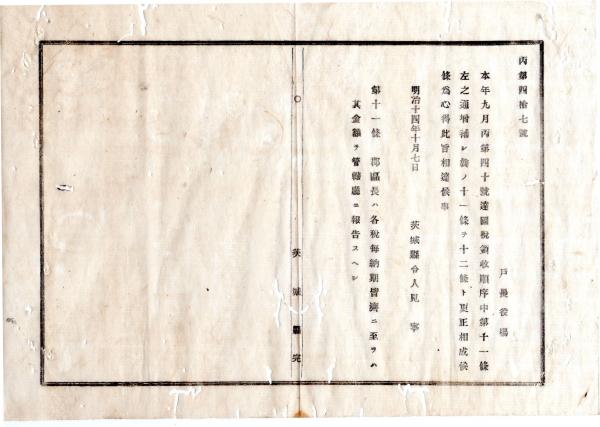 丙第四拾七號
戸長役場
本年九月丙第四十號達國税領收順序中第十一條
左之通增補シ舊ノ十一條ヲ十二條ト更正相成候
條爲心得此旨相達候事
明治十四年十月七日
茨城縣令人見寧
第十一條 郡區長ハ各税每納期皆濟ニ至ラハ
其金額ヲ管轄廳ニ報告スヘシ
茨城縣